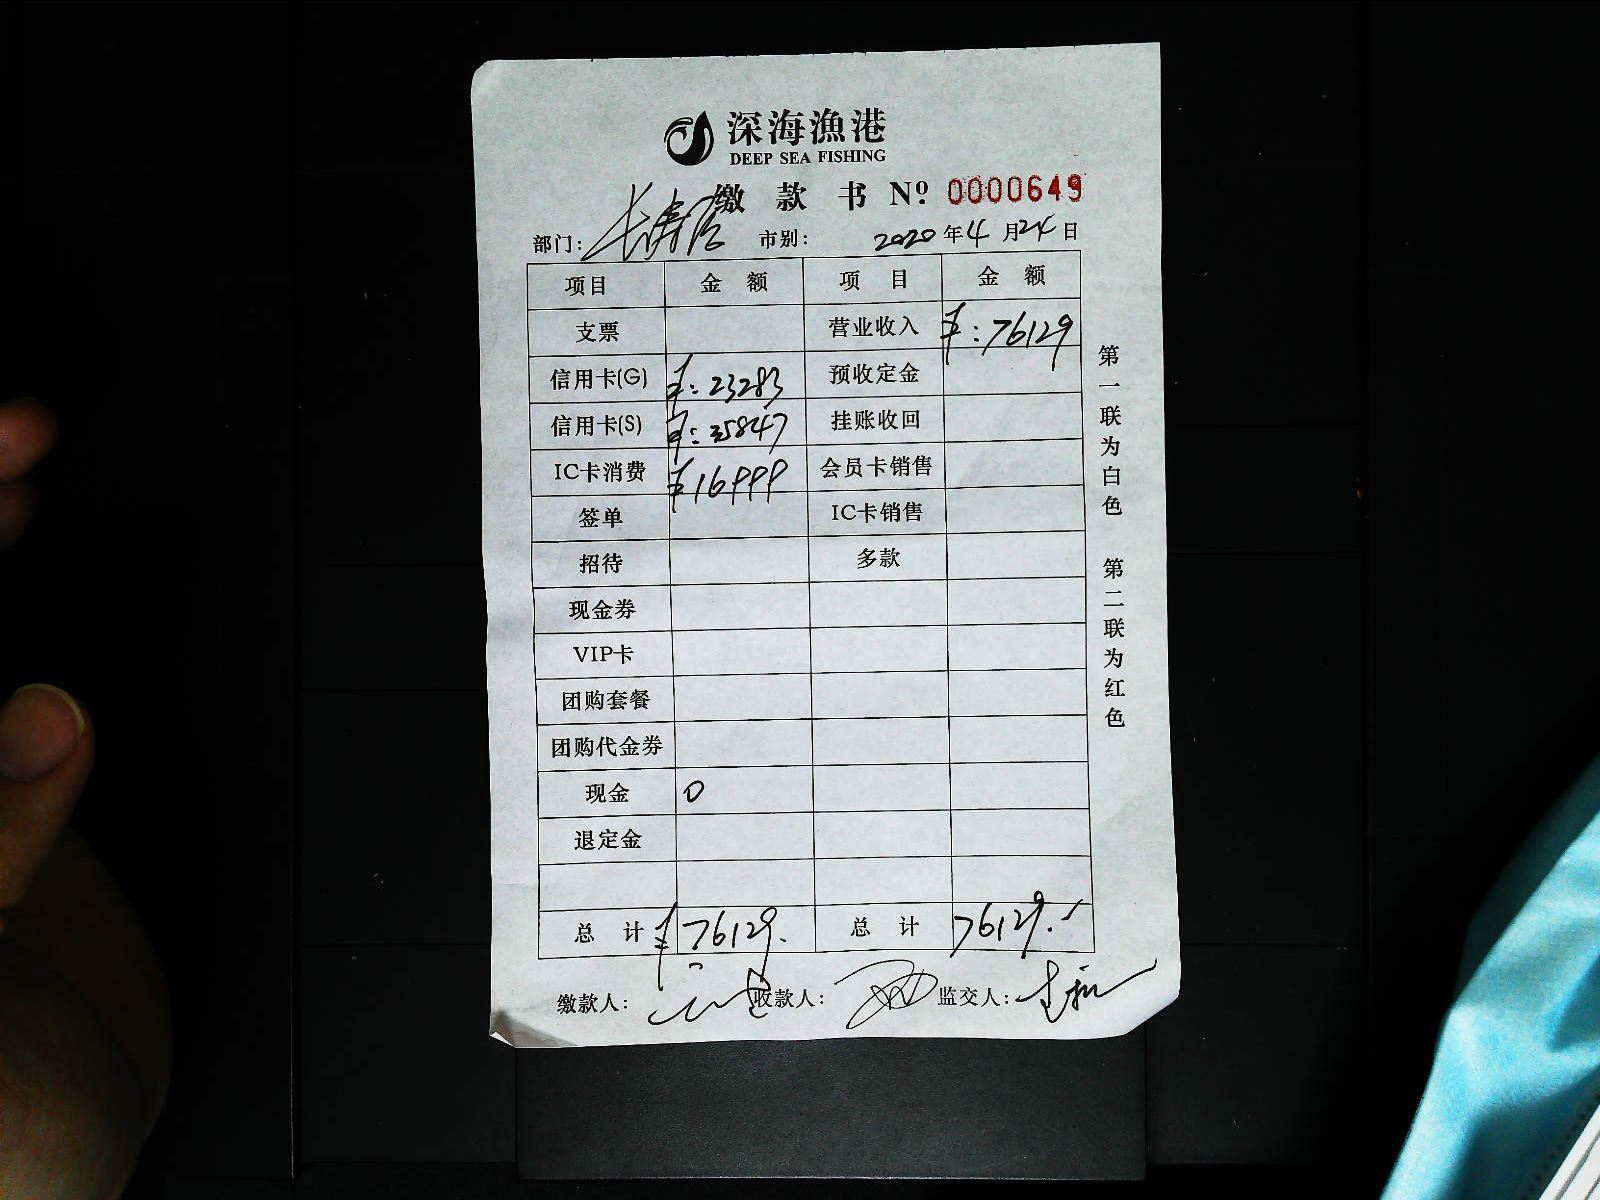 深海漁港
DEEP SEA FISHING
缴款书 Nº 0000649
部门: 长寿路 市别: 2020年4月24日
项目 金额 项目 金额
支票 营业收入 ¥:76129
信用卡(G) ¥:23283 预收定金
信用卡(S) ¥:35847 挂账收回
IC卡消费 ¥16999 会员卡销售
签单 IC卡销售
招待 多款
现金券
VIP卡
团购套餐
团购代金券
现金 0
退定金
总计 ¥76129. 总计 76129.
缴款人: 收款人: 监交人:
第一联为白色 第二联为红色